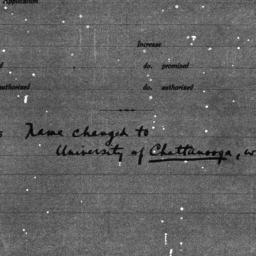 Application
Increase
do. promised
authorized do. authorized
Name changed to
University of Chattanooga,